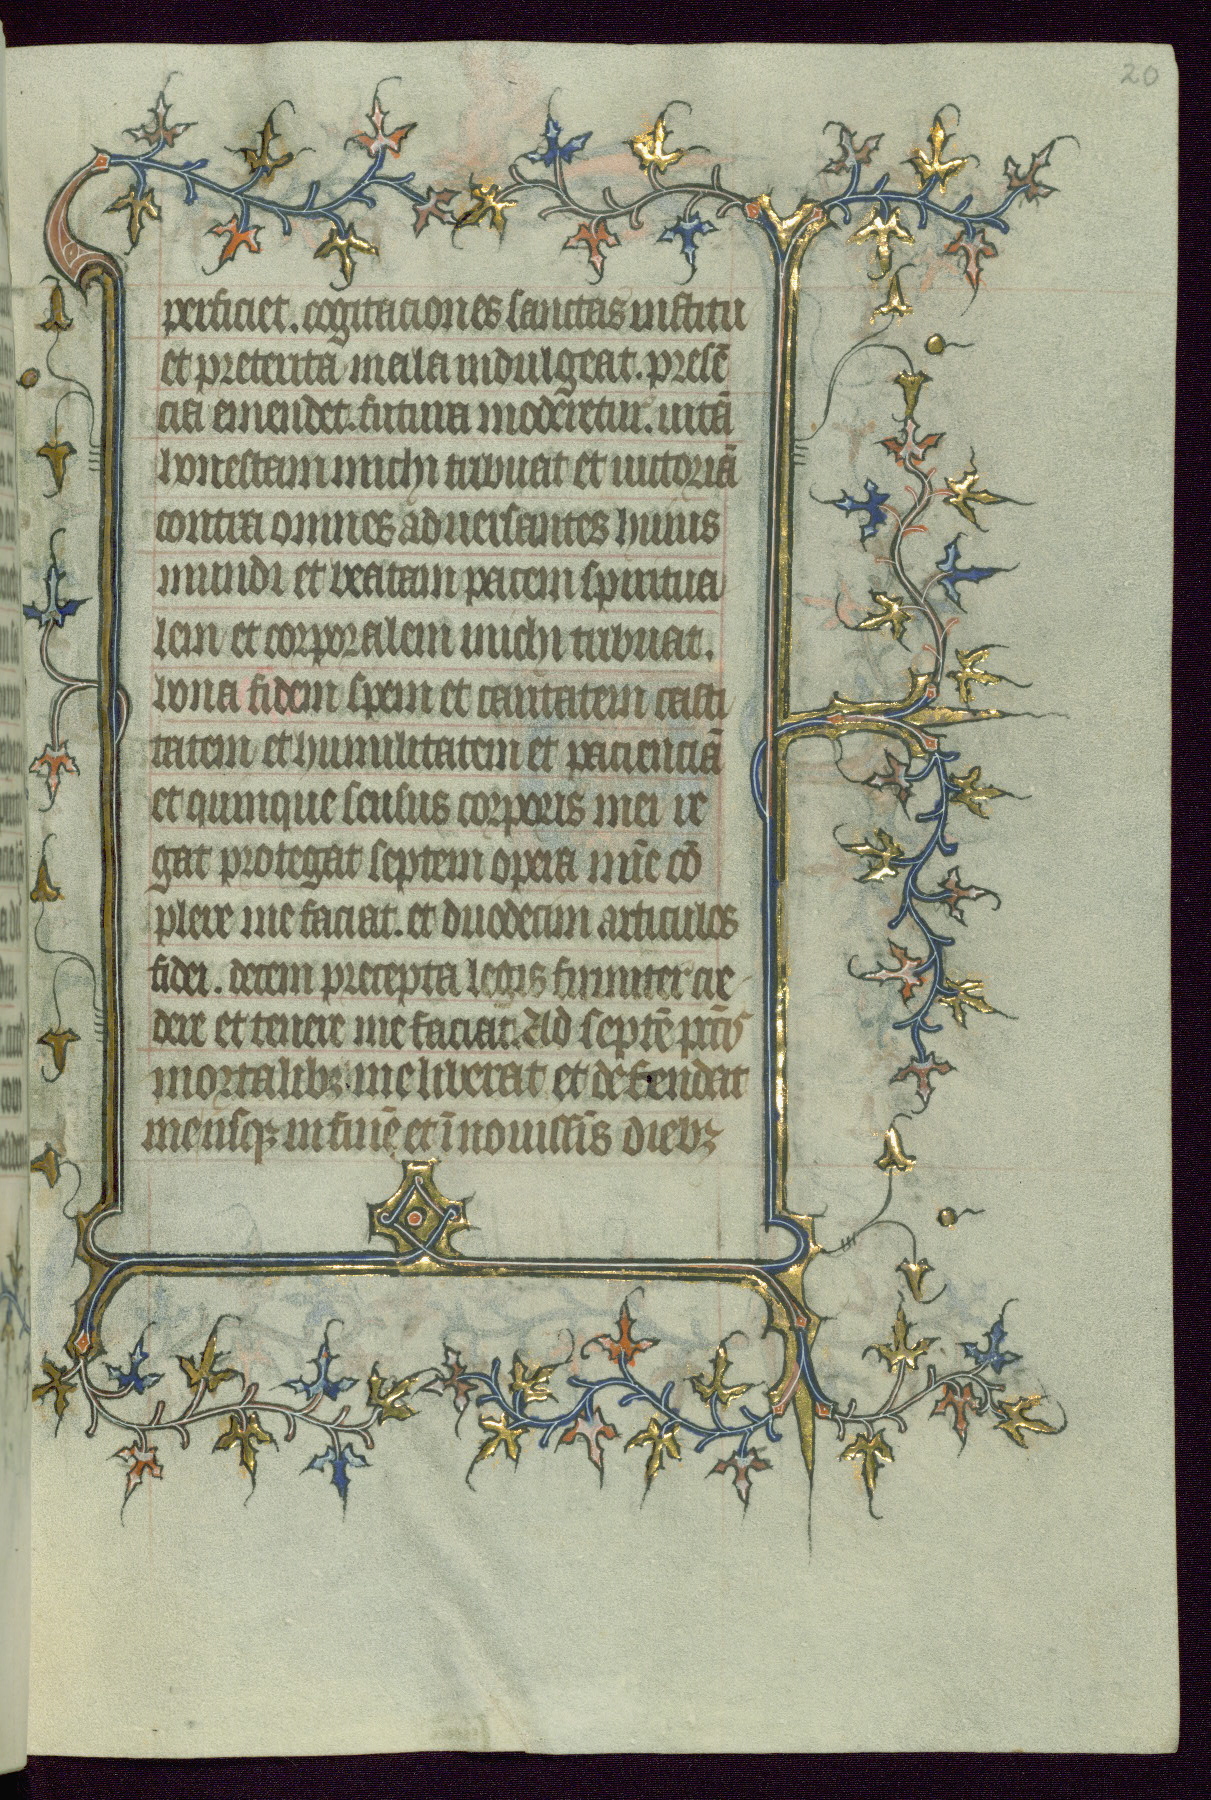 20
perficiet. cogitaciones sanctas instituat
et preterita mala indulgeat. presē
cia emendet. futura moderetur. uitā
honestam michi tribuat et uictoriā
contra omnes aduersantes huius
mundi et beatam pacem spiritua
lem et corporalem michi tribuat.
bona fidem spem et caritatem casti
tatem et humilitatem et pacienciā
et quinque sensus corporis mei re
gat protegat septem opera mīe cō
plere me faciat. et duodecim articulos
fidei. decem precepta legis firmiter cre
dere et tenere me faciat. Ad septē pctīs
mortalibꝫ me liberat et defendat
meusqꝫ in finē et ī nouissīs diebꝫ